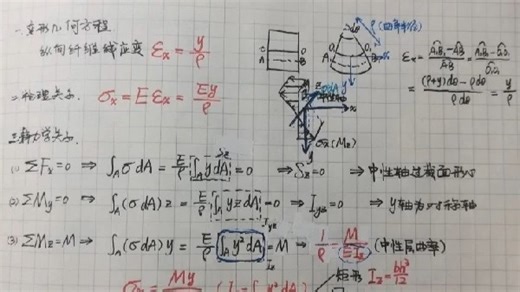 一.变形几何方程
纵向纤维线应变 εx = y/ρ
εx = (A₁B₁-AB)/AB = (A₁B₁-O₁O₂)/O₁O₂
= ((ρ+y)dθ-ρdθ)/ρdθ = y/ρ
二.物理关系. σx = Eεx = Ey/ρ
σx(Mz)
三.静力学关系.
(1) ΣFx=0 ⇒ ∫A σdA = E/ρ ∫A ydA = 0 ⇒ Sz=0 ⇒ 中性轴过截面形心
(2) ΣMy=0 ⇒ ∫A(σdA)z = E/ρ ∫A yzdA = 0 ⇒ Iyz=0 ⇒ y轴为对称轴
Iyz
(3) ΣMz=M ⇒ ∫A(σdA)y = E/ρ ∫A y²dA = M ⇒ 1/ρ = M/EIz (中性层曲率)
Iz
矩形 Iz = bh³/12
σx = My